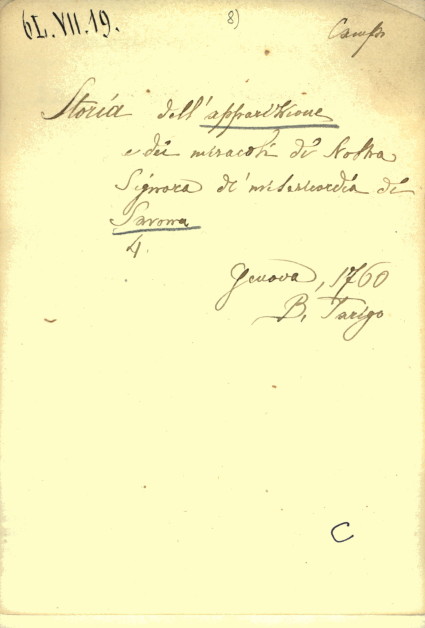 6L.VII.19.
8)
Storia dell'apparizione
e dei miracoli di Nostra
Signora di misericordia di
Savona
4.
Genova, 1760
B. Tarigo
C